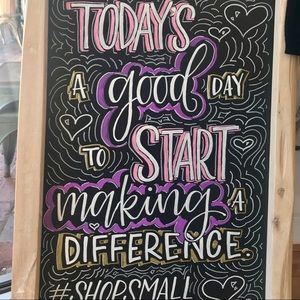 TODAY'S
A good DAY
TO START
making A
DIFFERENCE.
#SHOPSMALL